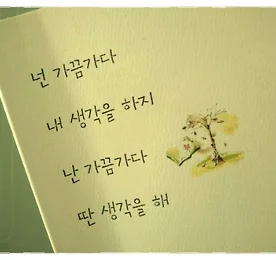 넌 가끔가다
내 생각을 하지
난 가끔가다
딴 생각을 해